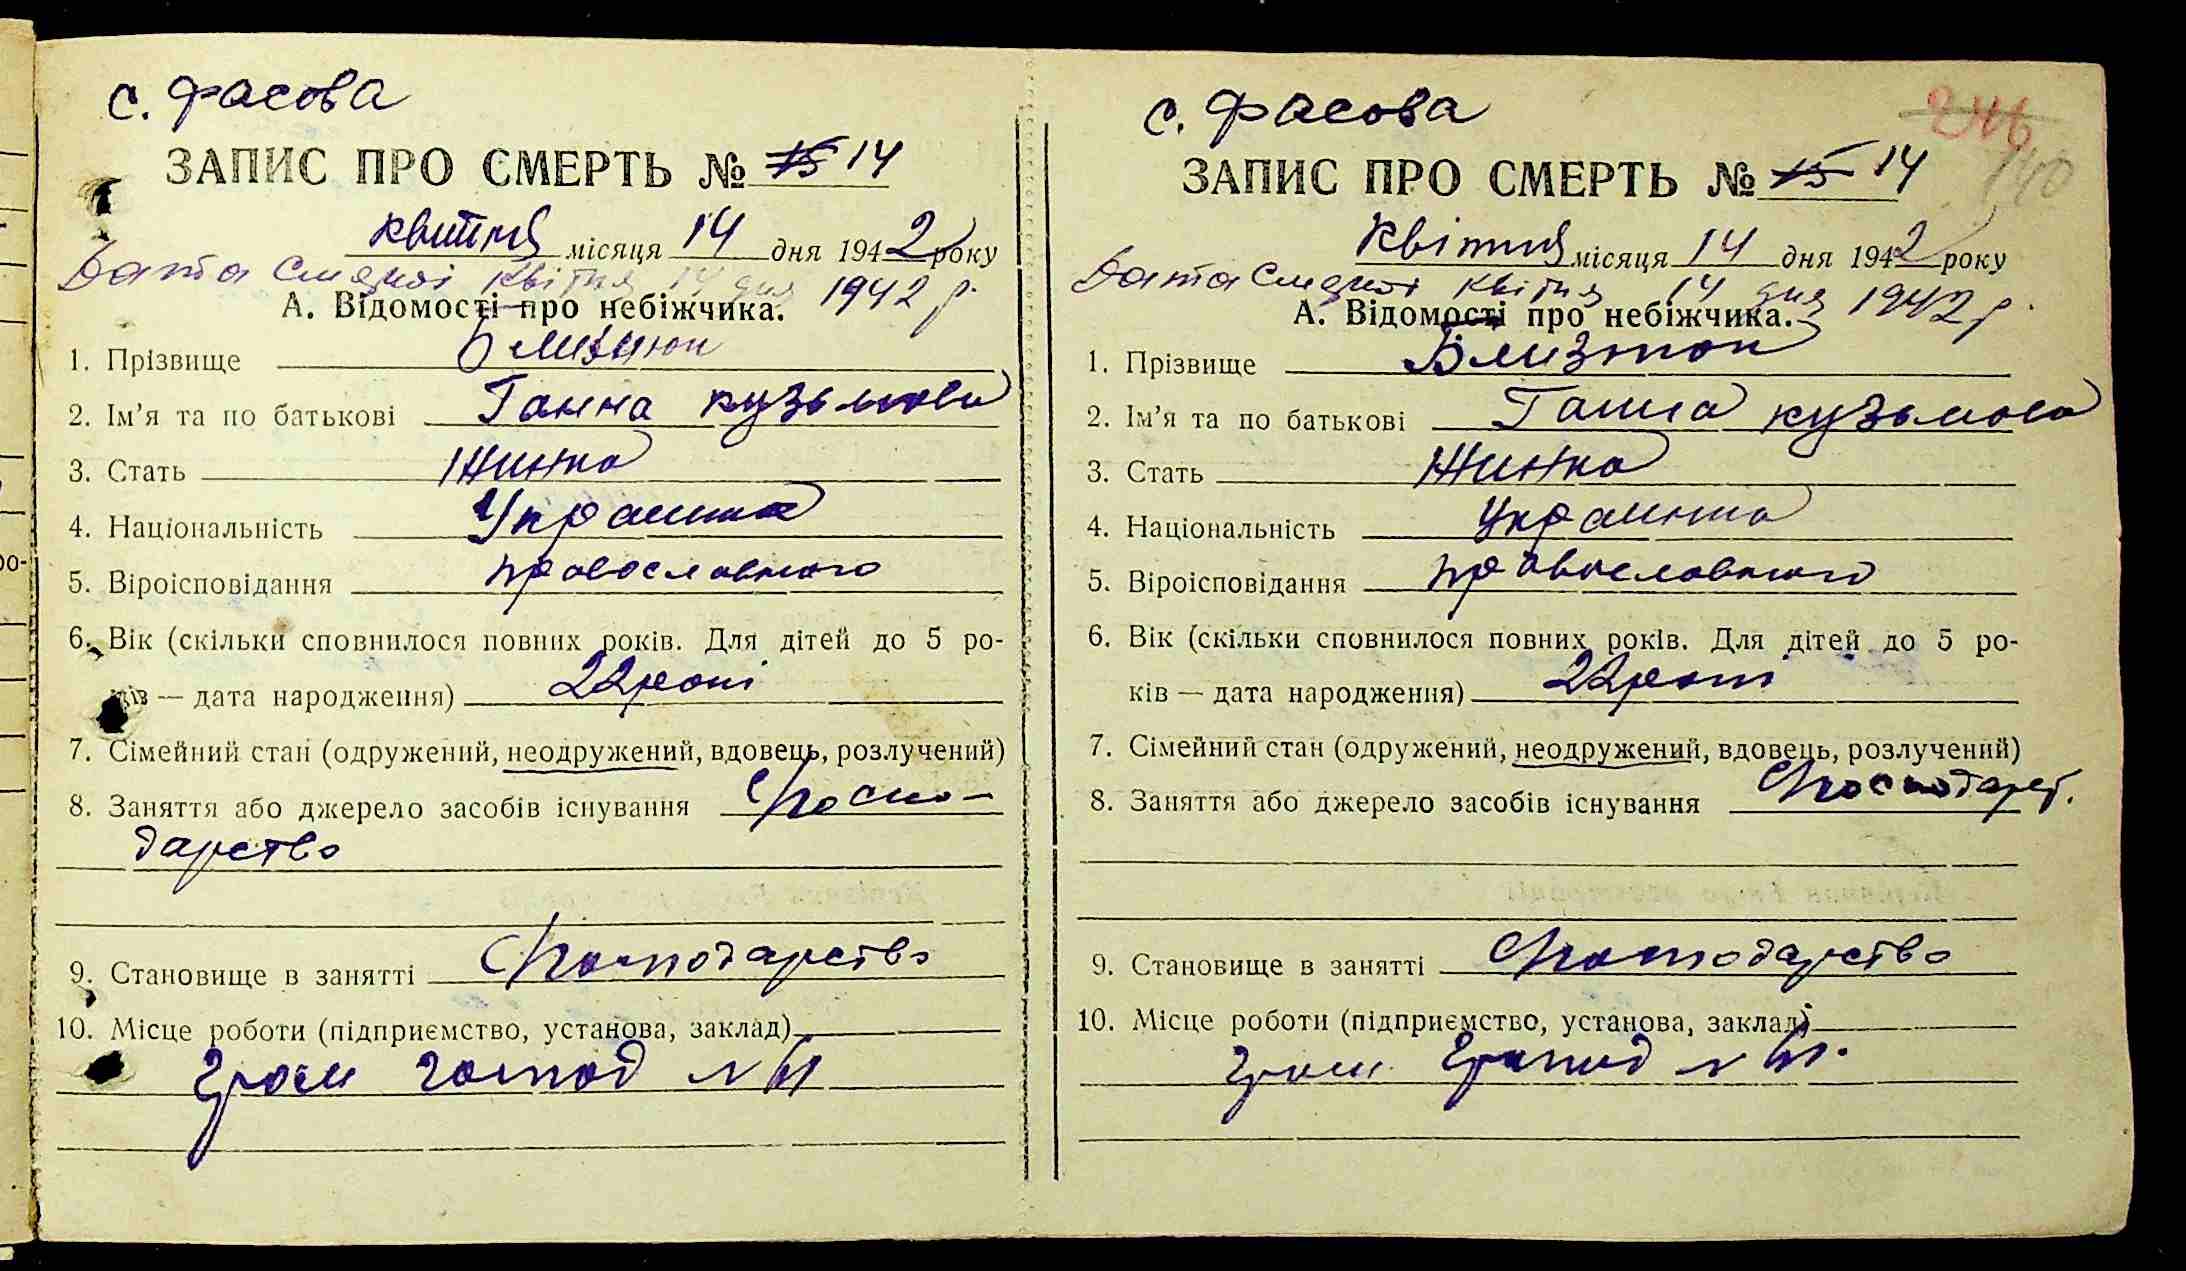 с. Фасова
ЗАПИС ПРО СМЕРТЬ № 15 14
квитня місяця 14 дня 1942 року
Дата смерті квітня 14 дня 1942 р.
А. Відомості про небіжчика.
1. Прізвище Близнюк
2. Ім'я та по батькові Ганна кузьмова
3. Стать Жинка
4. Національність Украинка
5. Віроісповідання православного
6. Вік (скільки сповнилося повних років. Для дітей до 5 ро-
ків — дата народження) 22 роки
7. Сімейний стан (одружений, неодружений, вдовець, розлучений)
8. Заняття або джерело засобів існування Госпо-
дарство
9. Становище в занятті Господарство
10. Місце роботи (підприємство, установа, заклад)
Гром господ
с. Фасова
246
140
ЗАПИС ПРО СМЕРТЬ № 15 14
Квітня місяця 14 дня 1942 року
Дата смерті квітня 14 дня 1942 р.
А. Відомості про небіжчика.
1. Прізвище Близнюк
2. Ім'я та по батькові Ганна кузьмова
3. Стать Жинка
4. Національність Украинка
5. Віроісповідання православного
6. Вік (скільки сповнилося повних років. Для дітей до 5 ро-
ків — дата народження) 22 роки
7. Сімейний стан (одружений, неодружений, вдовець, розлучений)
8. Заняття або джерело засобів існування Господарст.
9. Становище в занятті Господарство
10. Місце роботи (підприємство, установа, заклад)
Гром. Господ